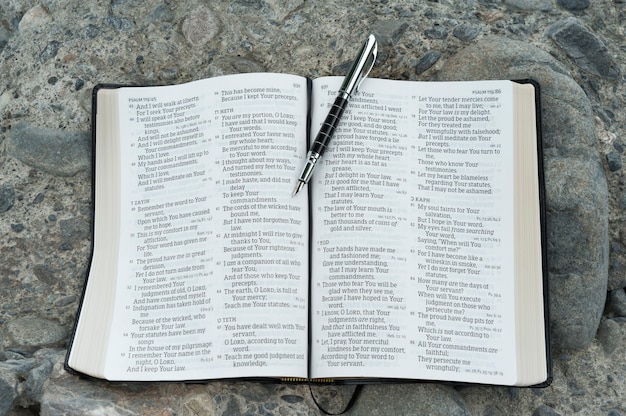 PSALM 119:45
45 And I will walk at liberty,
For I seek Your precepts.
46 I will speak of Your
testimonies also before
kings,
And will not be ashamed.
47 And I will delight myself in
Your commandments,
Which I love.
48 My hands also I will lift up to
Your commandments,
Which I love,
And I will meditate on Your
statutes.
ZAYIN
49 Remember the word to Your
servant,
Upon which You have caused
me to hope.
50 This is my comfort in my
affliction,
For Your word has given me
life.
51 The proud have me in great
derision,
Yet I do not turn aside from
Your law.
52 I remembered Your
judgments of old, O LORD,
And have comforted myself.
53 Indignation has taken hold of
me
Because of the wicked, who
forsake Your law.
54 Your statutes have been my
songs
In the house of my pilgrimage.
55 I remember Your name in the
night, O LORD,
And I keep Your law.
56 This has become mine,
Because I kept Your precepts.
HETH
57 You are my portion, O LORD;
I have said that I would keep
Your words.
58 I entreated Your favor with
my whole heart;
Be merciful to me according
to Your word.
59 I thought about my ways,
And turned my feet to Your
testimonies.
60 I made haste, and did not
delay
To keep Your
commandments.
61 The cords of the wicked have
bound me,
But I have not forgotten Your
law.
62 At midnight I will rise to give
thanks to You,
Because of Your righteous
judgments.
63 I am a companion of all who
fear You,
And of those who keep Your
precepts.
64 The earth, O LORD, is full of
Your mercy;
Teach me Your statutes.
TETH
65 You have dealt well with Your
servant,
O LORD, according to Your
word.
66 Teach me good judgment and
knowledge,
For I
commandments.
was afflicted I went
keep Your word.
are good, and do good;
Your statutes.
proud have forged a lie
against me;
I will keep Your precepts
with my whole heart.
Their heart is as fat as
grease,
But I delight in Your law.
It is good for me that I have
been afflicted,
That I may learn Your
statutes.
72 The law of Your mouth is
better to me
Than thousands of coins of
gold and silver.
YOD
73 Your hands have made me
and fashioned me;
Give me understanding, that
I may learn Your
commandments.
74 Those who fear You will be
glad when they see me,
Because I have hoped in Your
word.
75 I know, O LORD, that Your
judgments are right,
And that in faithfulness You
have afflicted me.
76 Let, I pray, Your merciful
kindness be for my comfort,
According to Your word to
Your servant.
PSALM 119:86
77 Let Your tender mercies come
to me, that I may live;
For Your law is my delight.
78 Let the proud be ashamed,
For they treated me
wrongfully with falsehood;
But I will meditate on Your
precepts.
79 Let those who fear You turn to
me,
Those who know Your
testimonies.
80 Let my heart be blameless
regarding Your statutes,
That I may not be ashamed.
KAPH
81 My soul faints for Your
salvation,
But I hope in Your word.
82 My eyes fail from searching
Your word,
Saying, "When will You
comfort me?"
83 For I have become like a
wineskin in smoke,
Yet I do not forget Your
statutes.
84 How many are the days of
Your servant?
When will You execute
judgment on those who
persecute me?
85 The proud have dug pits for
me,
Which is not according to
Your law.
86 All Your commandments are
faithful;
They persecute me
wrongfully;